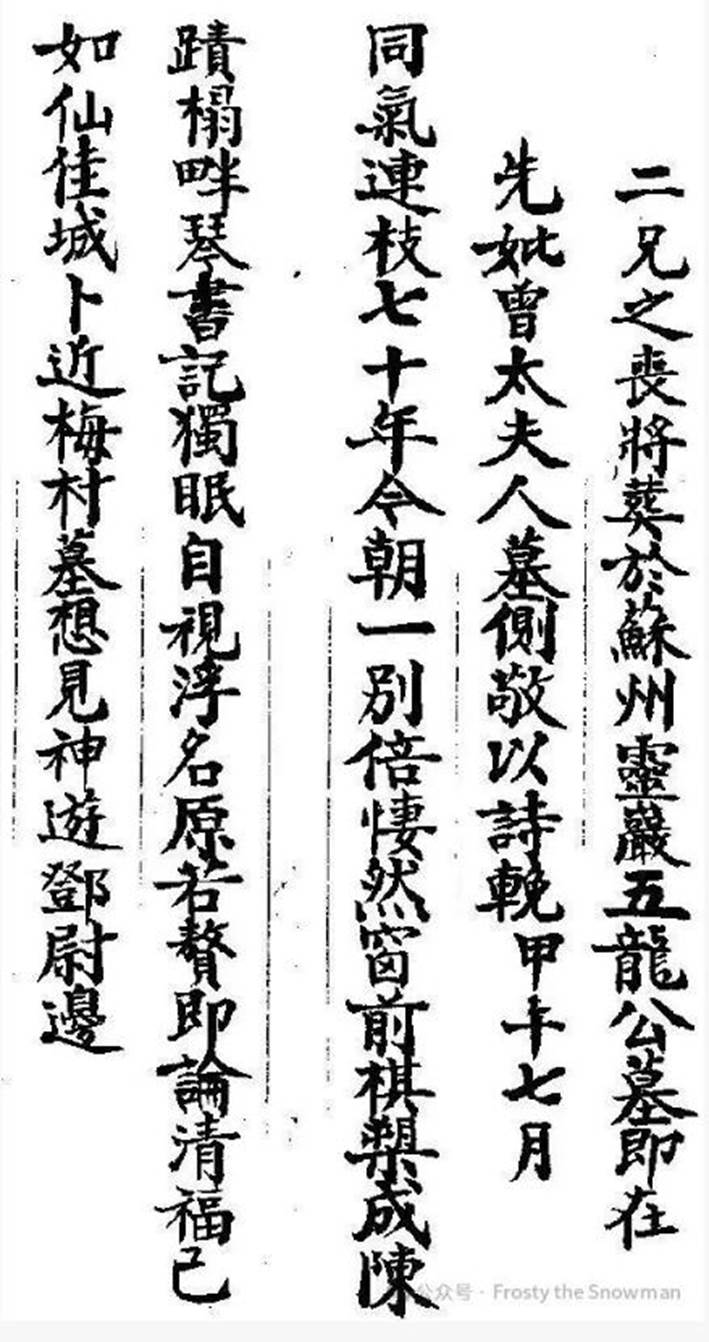 二兄之喪將葬於蘇州靈巖五龍公墓即在
先妣曾太夫人墓側敬以詩輓甲午七月
同氣連枝七十年今朝一別倍悽然窗前棋槊成陳
蹟榻畔琴書記獨眠自視浮名原若贅即論清福已
如仙佳城卜近梅村墓想見神遊鄧尉邊
公众号 · Frosty the Snowman